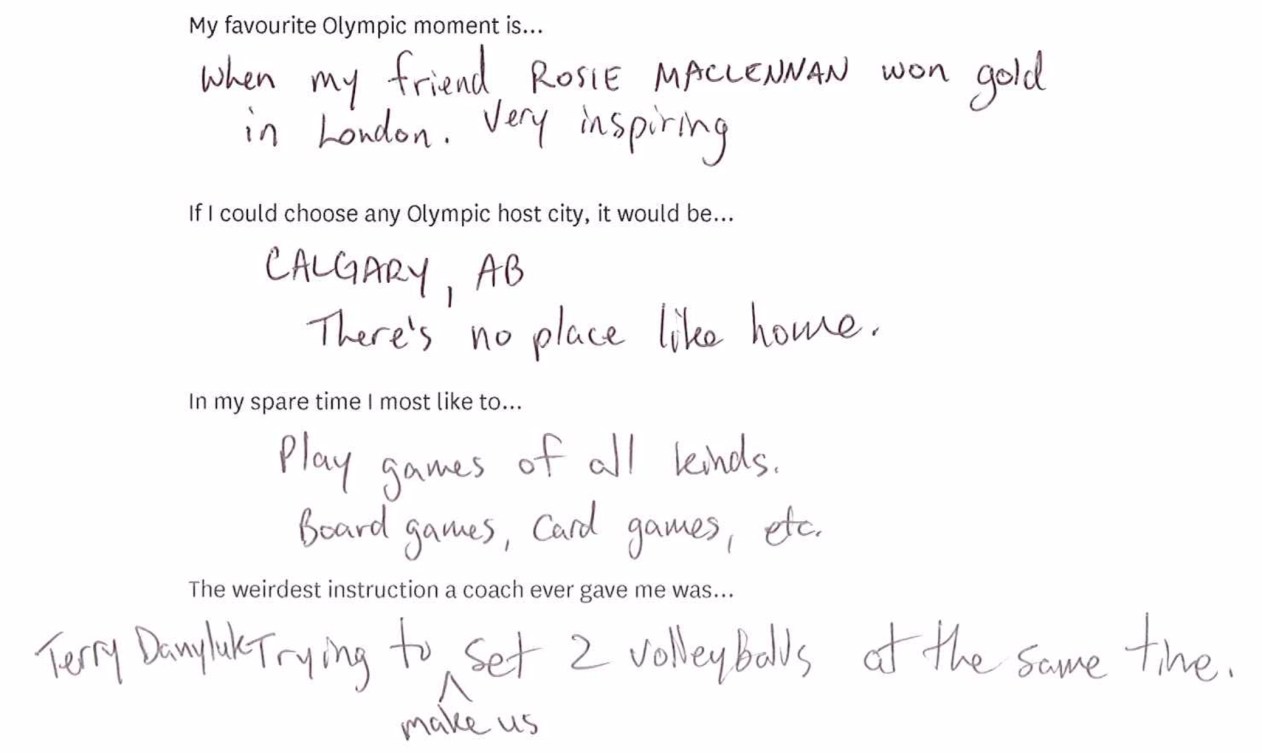 My favourite Olympic moment is...
When my friend ROSIE MACLENNAN won gold
in London. Very inspiring
If I could choose any Olympic host city, it would be...
CALGARY, AB
There's no place like home.
In my spare time I most like to...
Play games of all kinds.
Board games, Card games, etc.
The weirdest instruction a coach ever gave me was...
Terry Danyluk Trying to set 2 volleyballs at the same time.
make us